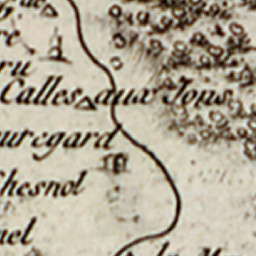 re
ru
Calles aux Jons
uregard
hesnol
nel